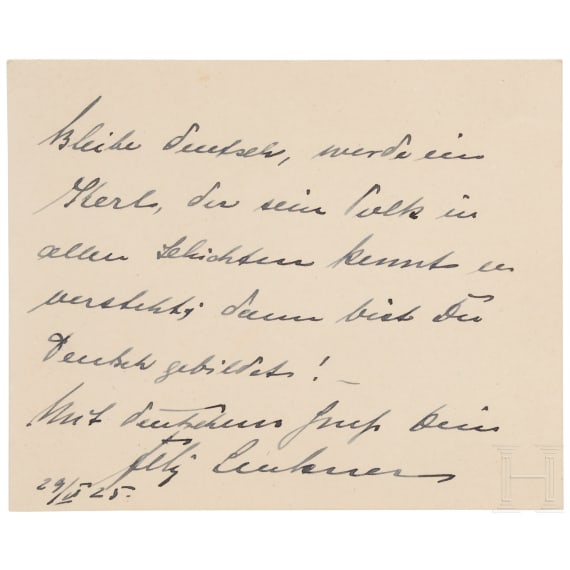 Bleibe deutsch, werde ein
Kerl, der sein Volk in
allen Schichten kennt u.
versteht; dann bist Du
Deutsch gebildet! –
Mit deutschem Gruß Dein
29/ 25.
H